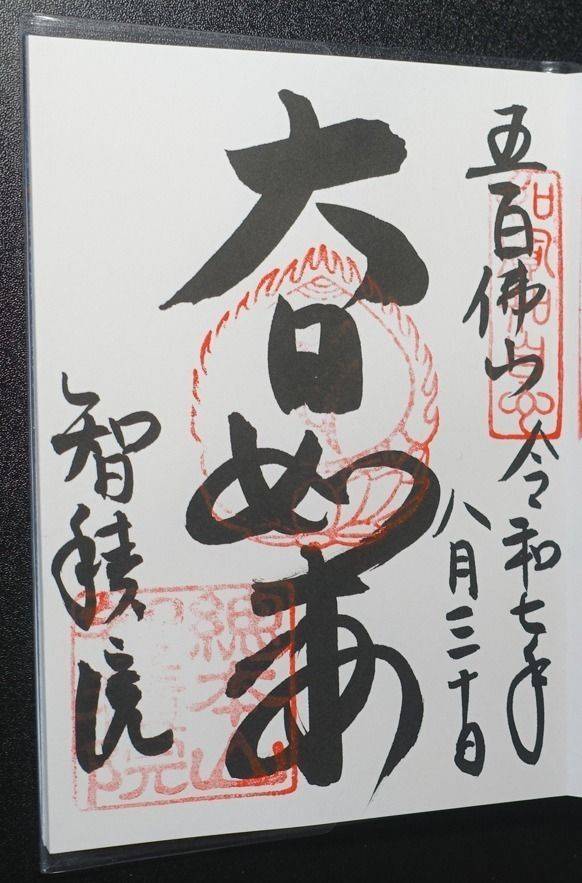 五百佛山
令和七年
八月三十日
大日如来
智積院
總本山
智積院